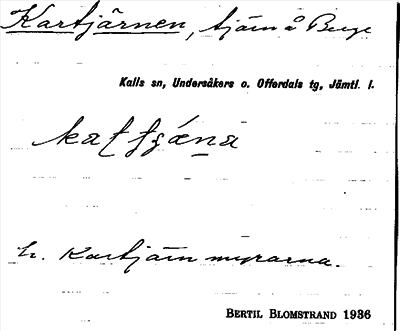 Kartjärnen, tjärn å Berge
Kalls sn, Undersåkers o. Offerdals tg, Jämtl. l.
h. Kartjärn myrarna.
BERTIL BLOMSTRAND 1936